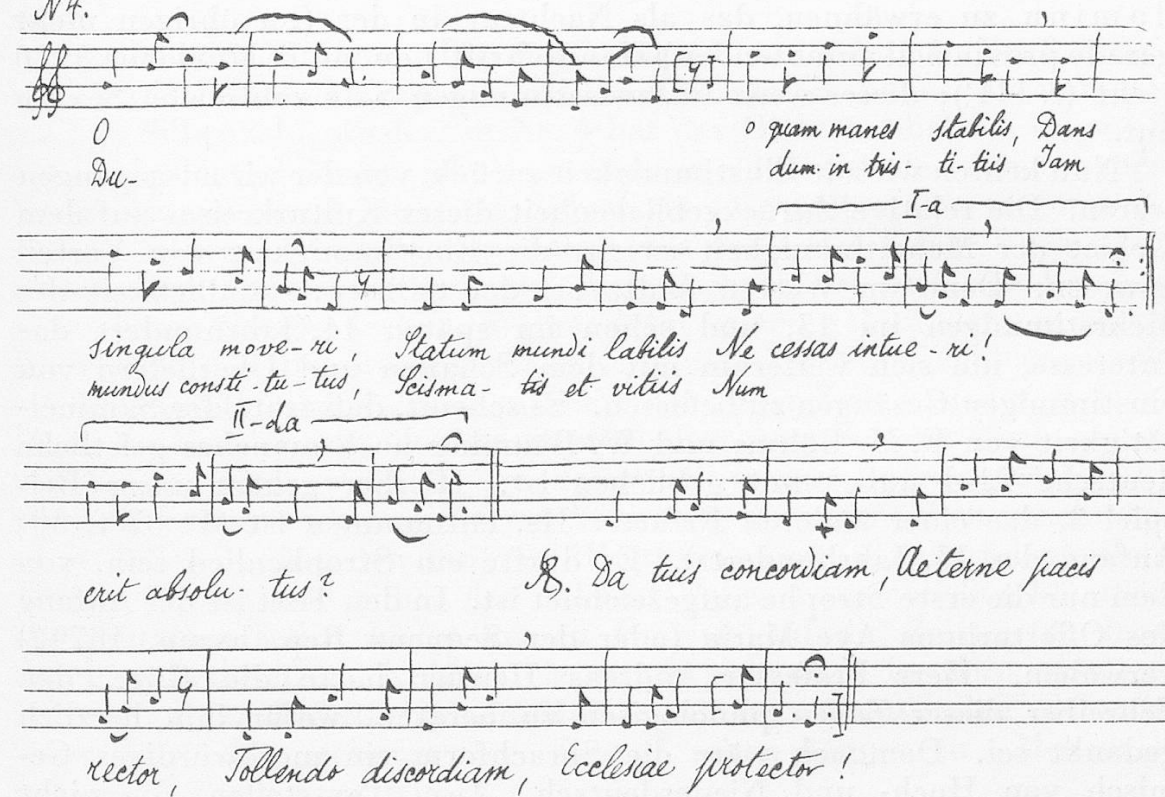 N 4.
O o quam manes stabilis, Dans
Du- dum in tris- ti-tiis Jam
I-a
singula move-ri, Statum mundi labilis Ne cessas intue-ri!
mundus consti-tu-tus, Scisma-tis et vitiis Num
II-da
erit absolu-tus?
℟. Da tuis concordiam, Aeterne pacis
rector, Tollendo discordiam, Ecclesiae protector!